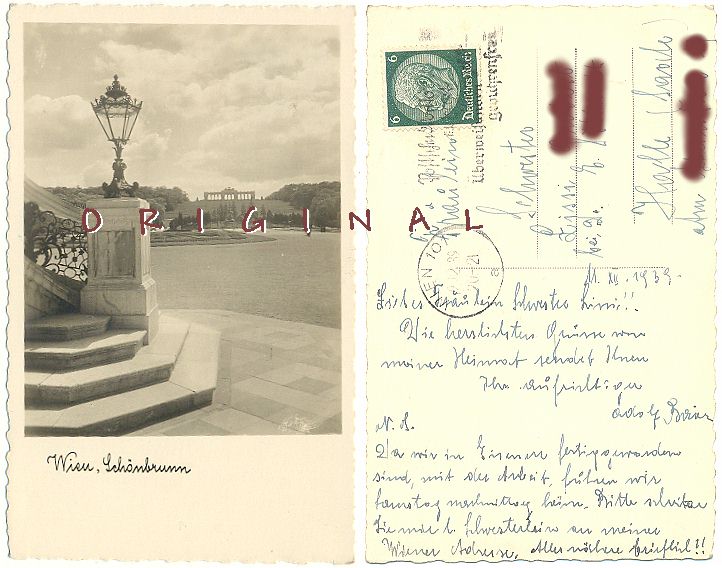 ORIGINAL
Wien, Schönbrunn
6
6
Deutsches Reich
überweisen
Schwester
Halle
WIEN 101
a
11. XII. 1939.
Liebes Fräulein Schwester Lissi!!
Die herzlichsten Grüsse von
meiner Heimat sendet Ihnen
Ihr aufrichtiger
Adolf
N. S.
Da wir in Eisenerz fertiggeworden
sind, mit der Arbeit, fuhren wir
samstag nachmittag heim. Bitte schreiben
Sie mir l. Schwesterlein an meine
Wiener Adresse, Alles nähere brieflich!!